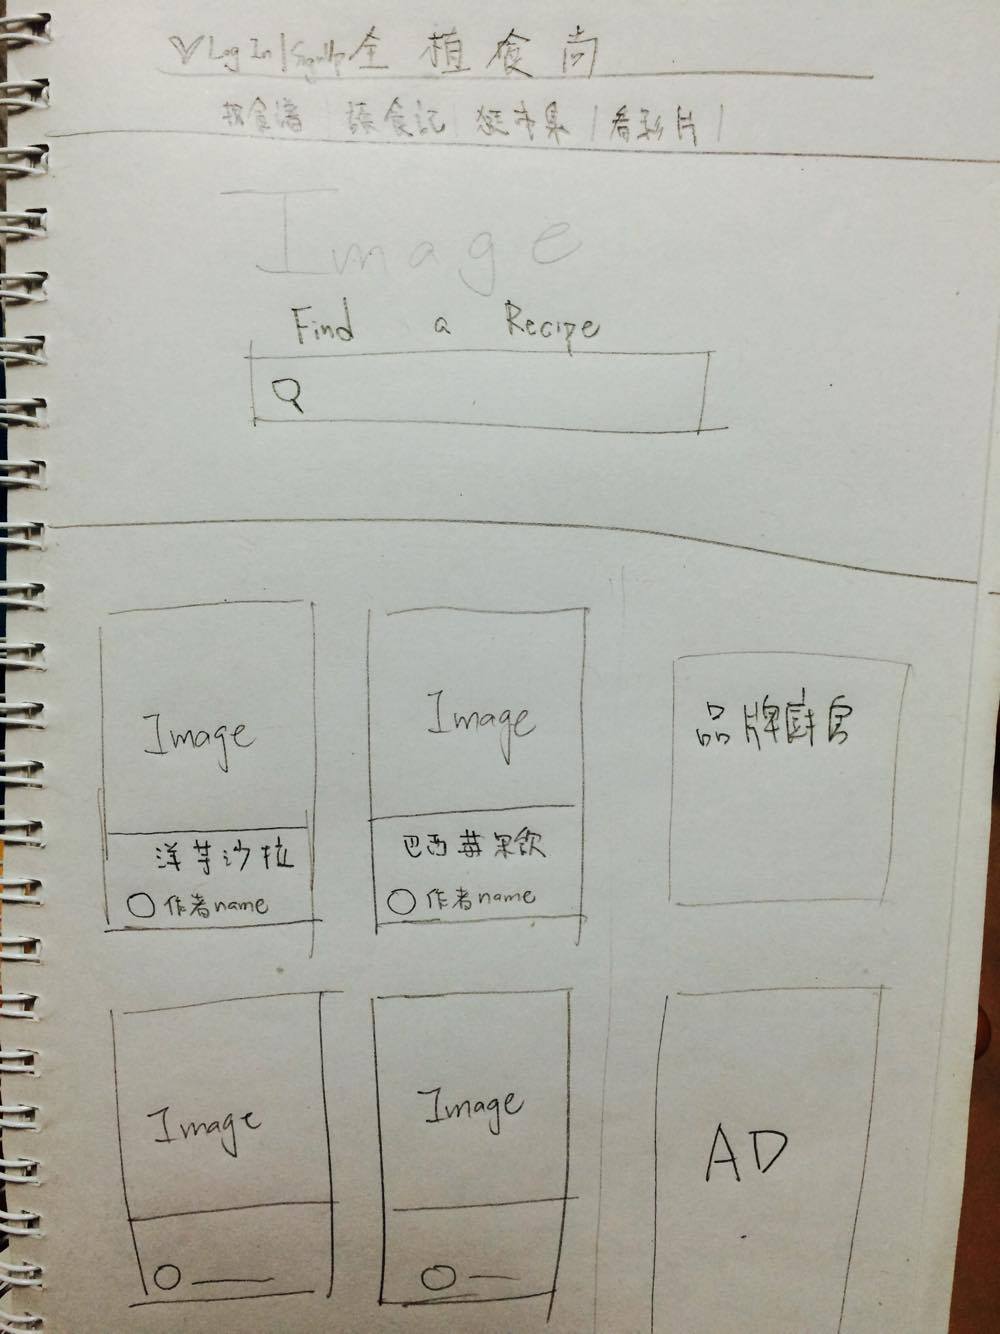 Log In | SignUp 全植食尚
找食譜 | 蔬食記 | 逛市集 | 看影片 |
Image
Find a Recipe
Image
洋芋沙拉
作者name
Image
巴西莓果飲
作者name
品牌廚房
Image
Image
AD